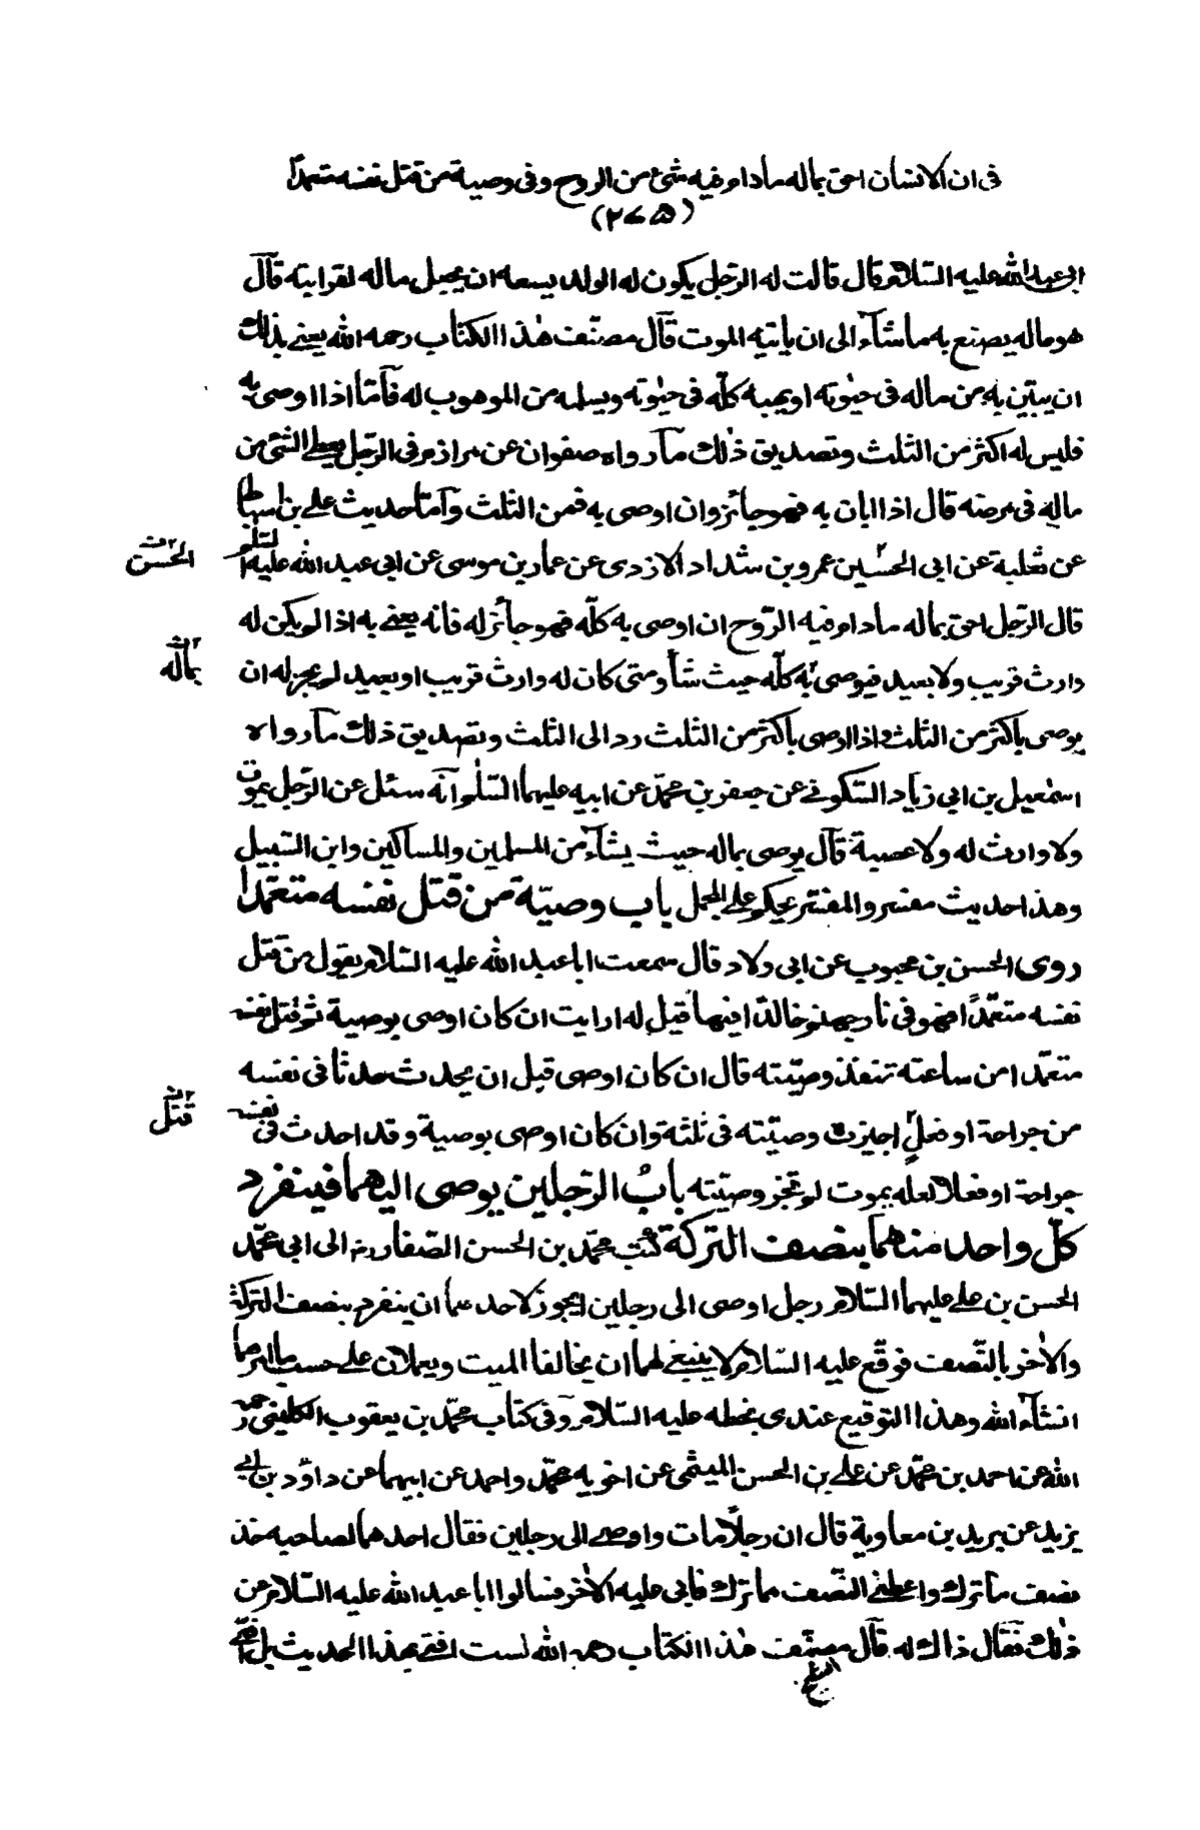 فى ان الانسان احق بماله مادام فيه شئ من الروح وفى وصية من قتل نفسه متعمدًا
(٢٧٥)
ابى عبد الله عليه السّلام قال قالت له الرّجل يكون له الولد يسعه ان يجعل ماله لقرابته قآل
هو ماله يصنع به ما شآء الى ان ياتيه الموت قآل مصنّف هٰذا الكتاب رحمه الله يعنى بذلك
ان يبيّن به من ماله فى حيٰوته او يهبه كلّه فى حيٰوته ويسلمه من الموهوب له فآمّا اذا اوصى به
فليس له اكثر من الثلث وتصديق ذٰلك مآ رواه صفوان عن مرازم فى الرّجل يعطى الشئ من
ماله فى مرضه قال اذا ابان به فهو جائز وان اوصى به فمن الثلث وآمّا حديث على بن اسباط
عن ثعلبة عن ابى الحسين عمرو بن شداد الازدى عن عمار بن موسى عن ابى عبد الله عليه السّلم
الحسن
قال الرّجل احق بماله مادام فيه الرّوح ان اوصى به كلّه فهو جائز له فانه يعنى به اذا لم يكن له
وارث قريب ولا بعيد فيوصى به كلّه حيث شآء ومتى كان له وارث قريب او بعيد لم يجز له ان
بماله
يوصى باكثر من الثلث واذا اوصى باكثر من الثلث رد الى الثلث وتصديق ذلك مآ رواه
اسمٰعيل بن ابى زياد السّكونى عن جعفر بن محمّد عن ابيه عليهما السّلٰم آنّه سئل عن الرّجل يموت
ولا وارث له ولا عصبة قآل يوصى بماله حيث يشآء من المسلمين والمساكين وابن السّبيل
وهذا حديث مفسر والمفسّر يحكم على المجمل باب وصيّة من قتل نفسه متعمّدا
روى الحسن بن محبوب عن ابى ولاد قال سمعت ابا عبد الله عليه السّلام يقول من قتل
نفسه متعمّدًا فهو فى نار جهنم خالدا فيها قيل له ارايت ان كان اوصى بوصية ثم قتل نفسه
متعمّدا من ساعته تنفذ وصيّته قال ان كان اوصى قبل ان يحدث حدثا فى نفسه
من جراحة او فعلٍ اجيزت وصيّته فى ثلثه وان كان اوصى بوصية وقد احدث فى نفسه
قتل
جراحة او فعلا لعله يموت لم تجز وصيّته بابُ الرّجلين يوصى اليهما فينفرد
كلّ واحد منهما بنصف التركة كتب محمّد بن الحسن الصّفار رضـ الى ابى محمّد
الحسن بن على عليهما السّلام رجل اوصى الى رجلين ايجوز لاحدهما ان ينفرد بنصف التركة
والاٰخر بالنّصف فوقّع عليه السّلام لا ينبغى لهما ان يخالفا الميت ويعملان على حسب ما امرهما
انشآء الله وهذا التوقيع عندى بخطه عليه السّلام وفى كتاب محمّد بن يعقوب الكلينى رحمه
الله عن احمد بن محمّد عن على بن الحسن الميثمى عن اخويه محمّد واحمد عن ابيهما عن داوٗد بن ابى
يزيد عن بريد بن معاوية قال ان رجلًا مات واوصى الى رجلين فقال احدهما لصاحبه خذ
نصف ما ترك واعطنى النّصف مما ترك فابى عليه الاٰخر فسالوا ابا عبد الله عليه السّلام عن
ذٰلك فقال ذاك له قآل مصنّف هٰذا الكتاب رحمه الله لست افتى بهذا الحديث بل افتى